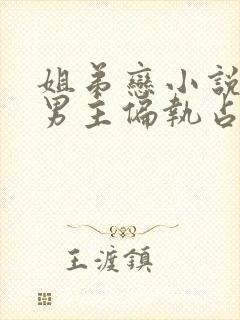 姐弟戀小說
男主偏執占
王渡鎮